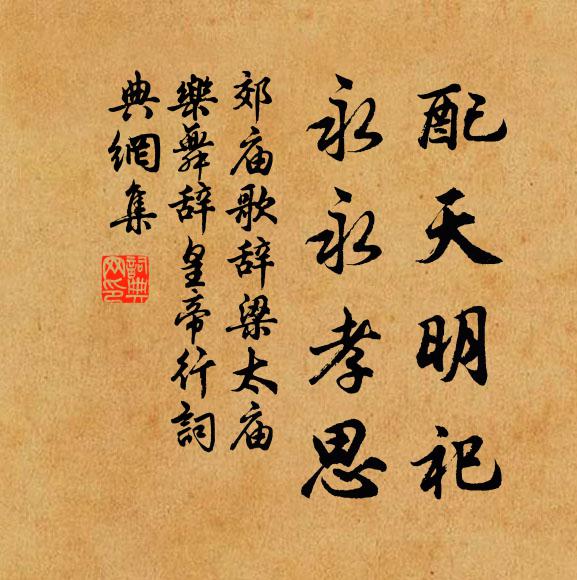 配天明祀
永永孝思
郊庙歌辞梁太庙
樂舞辞皇帝行詞
典網集
詞典
网印